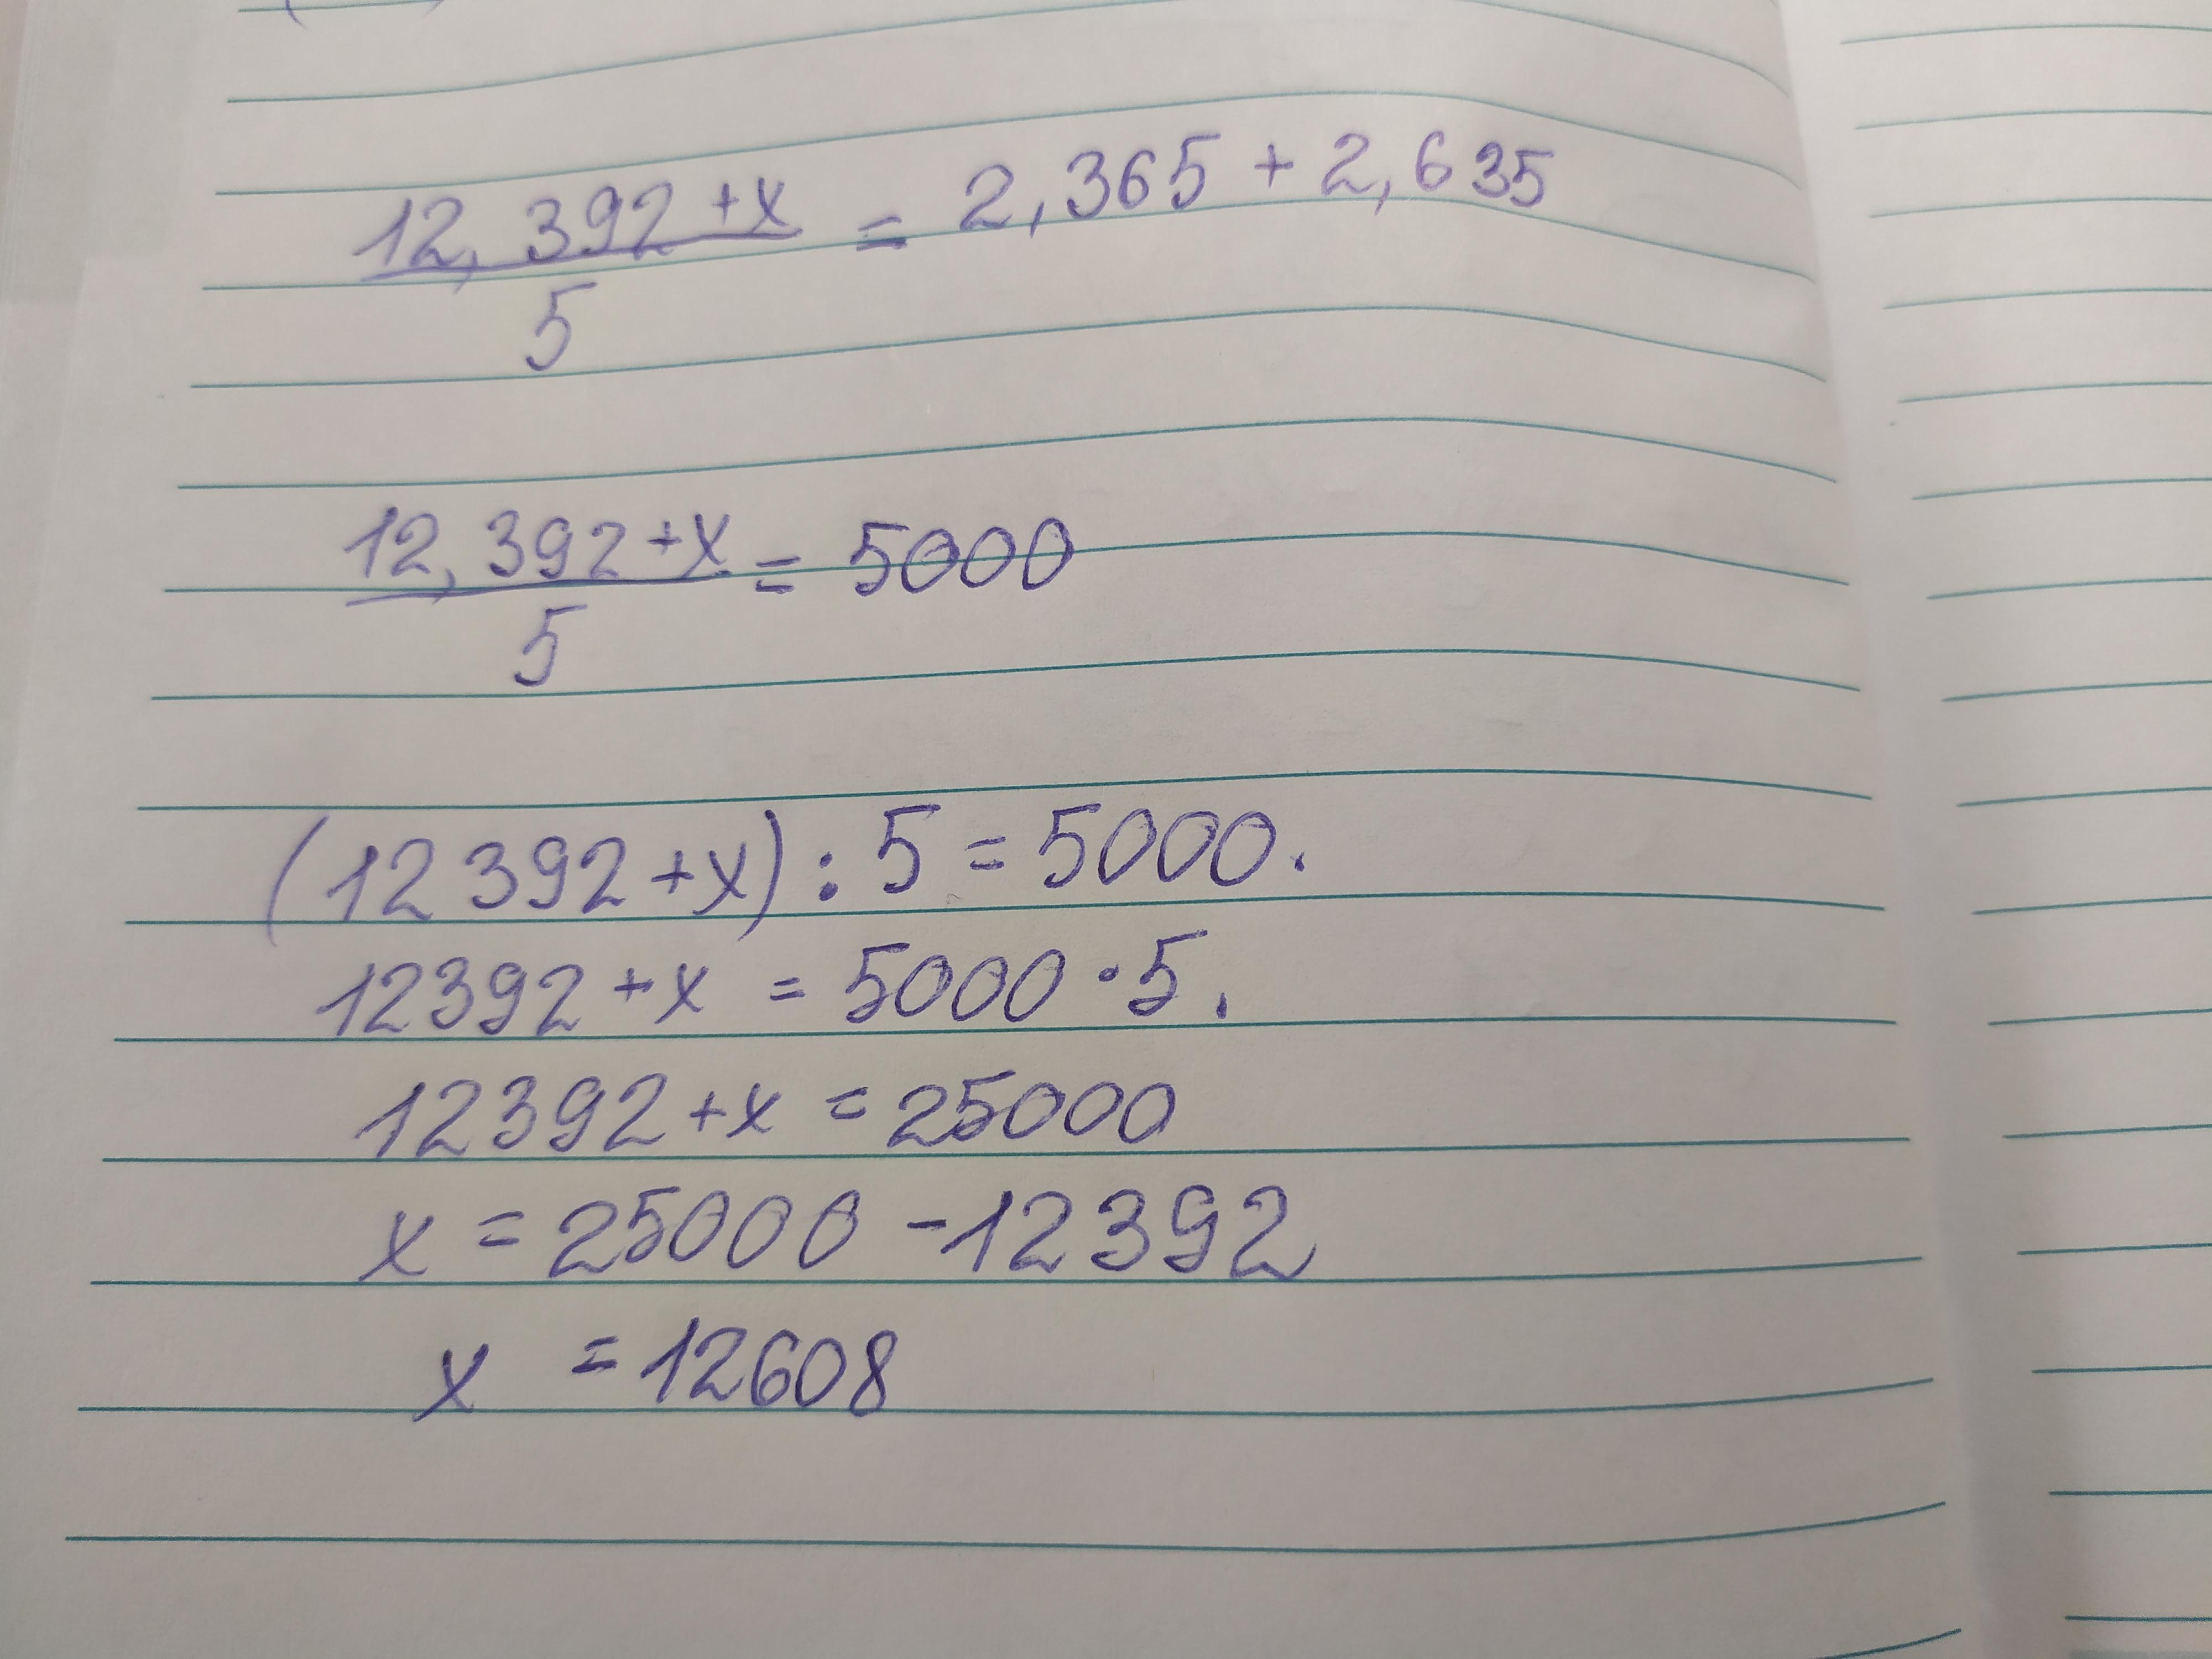 12, 392 +x = 2,365 + 2,635
5
12, 392 +x = 5000
5
(12 392 +x) : 5 = 5000.
12392 +x = 5000 · 5.
12392 +x = 25000
x = 25000 - 12392
x = 12608